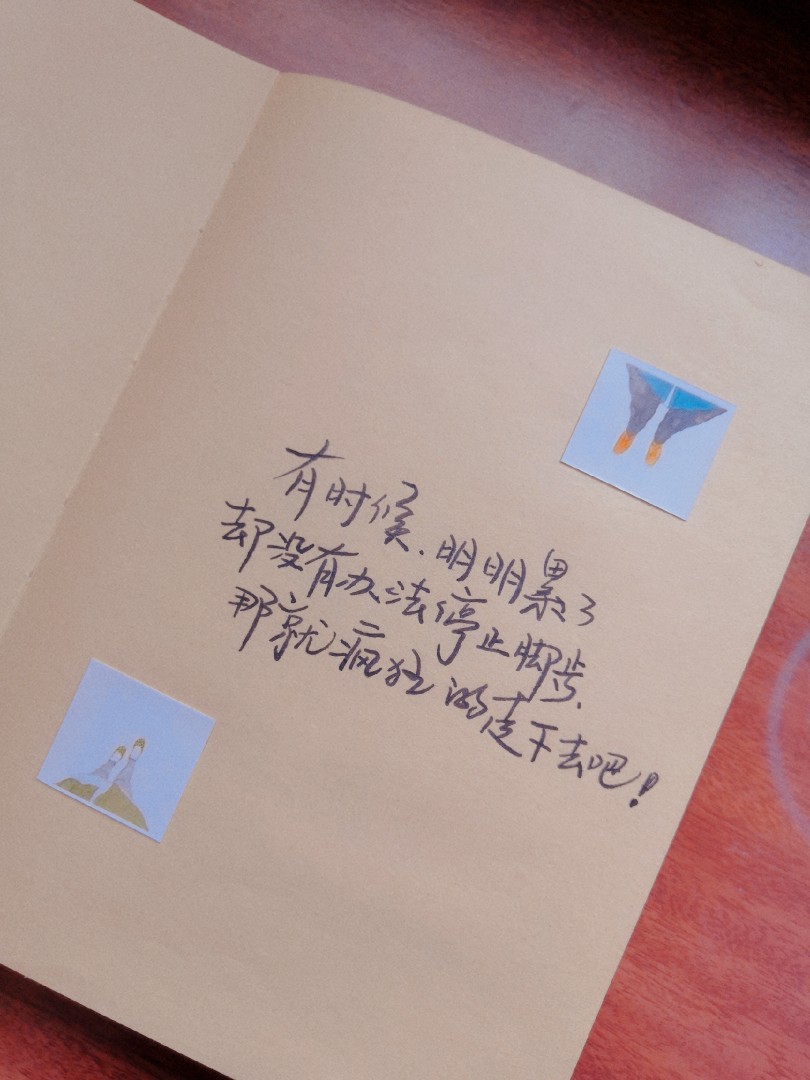 有时候、明明累了
却没有办法停止脚步、
那就疯狂的走下去吧!